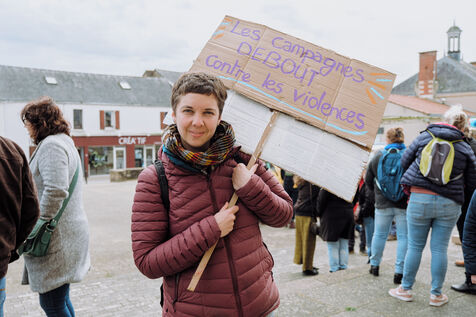 Les Campagnes
DEBOUT
contre les violences
CRÉATIF